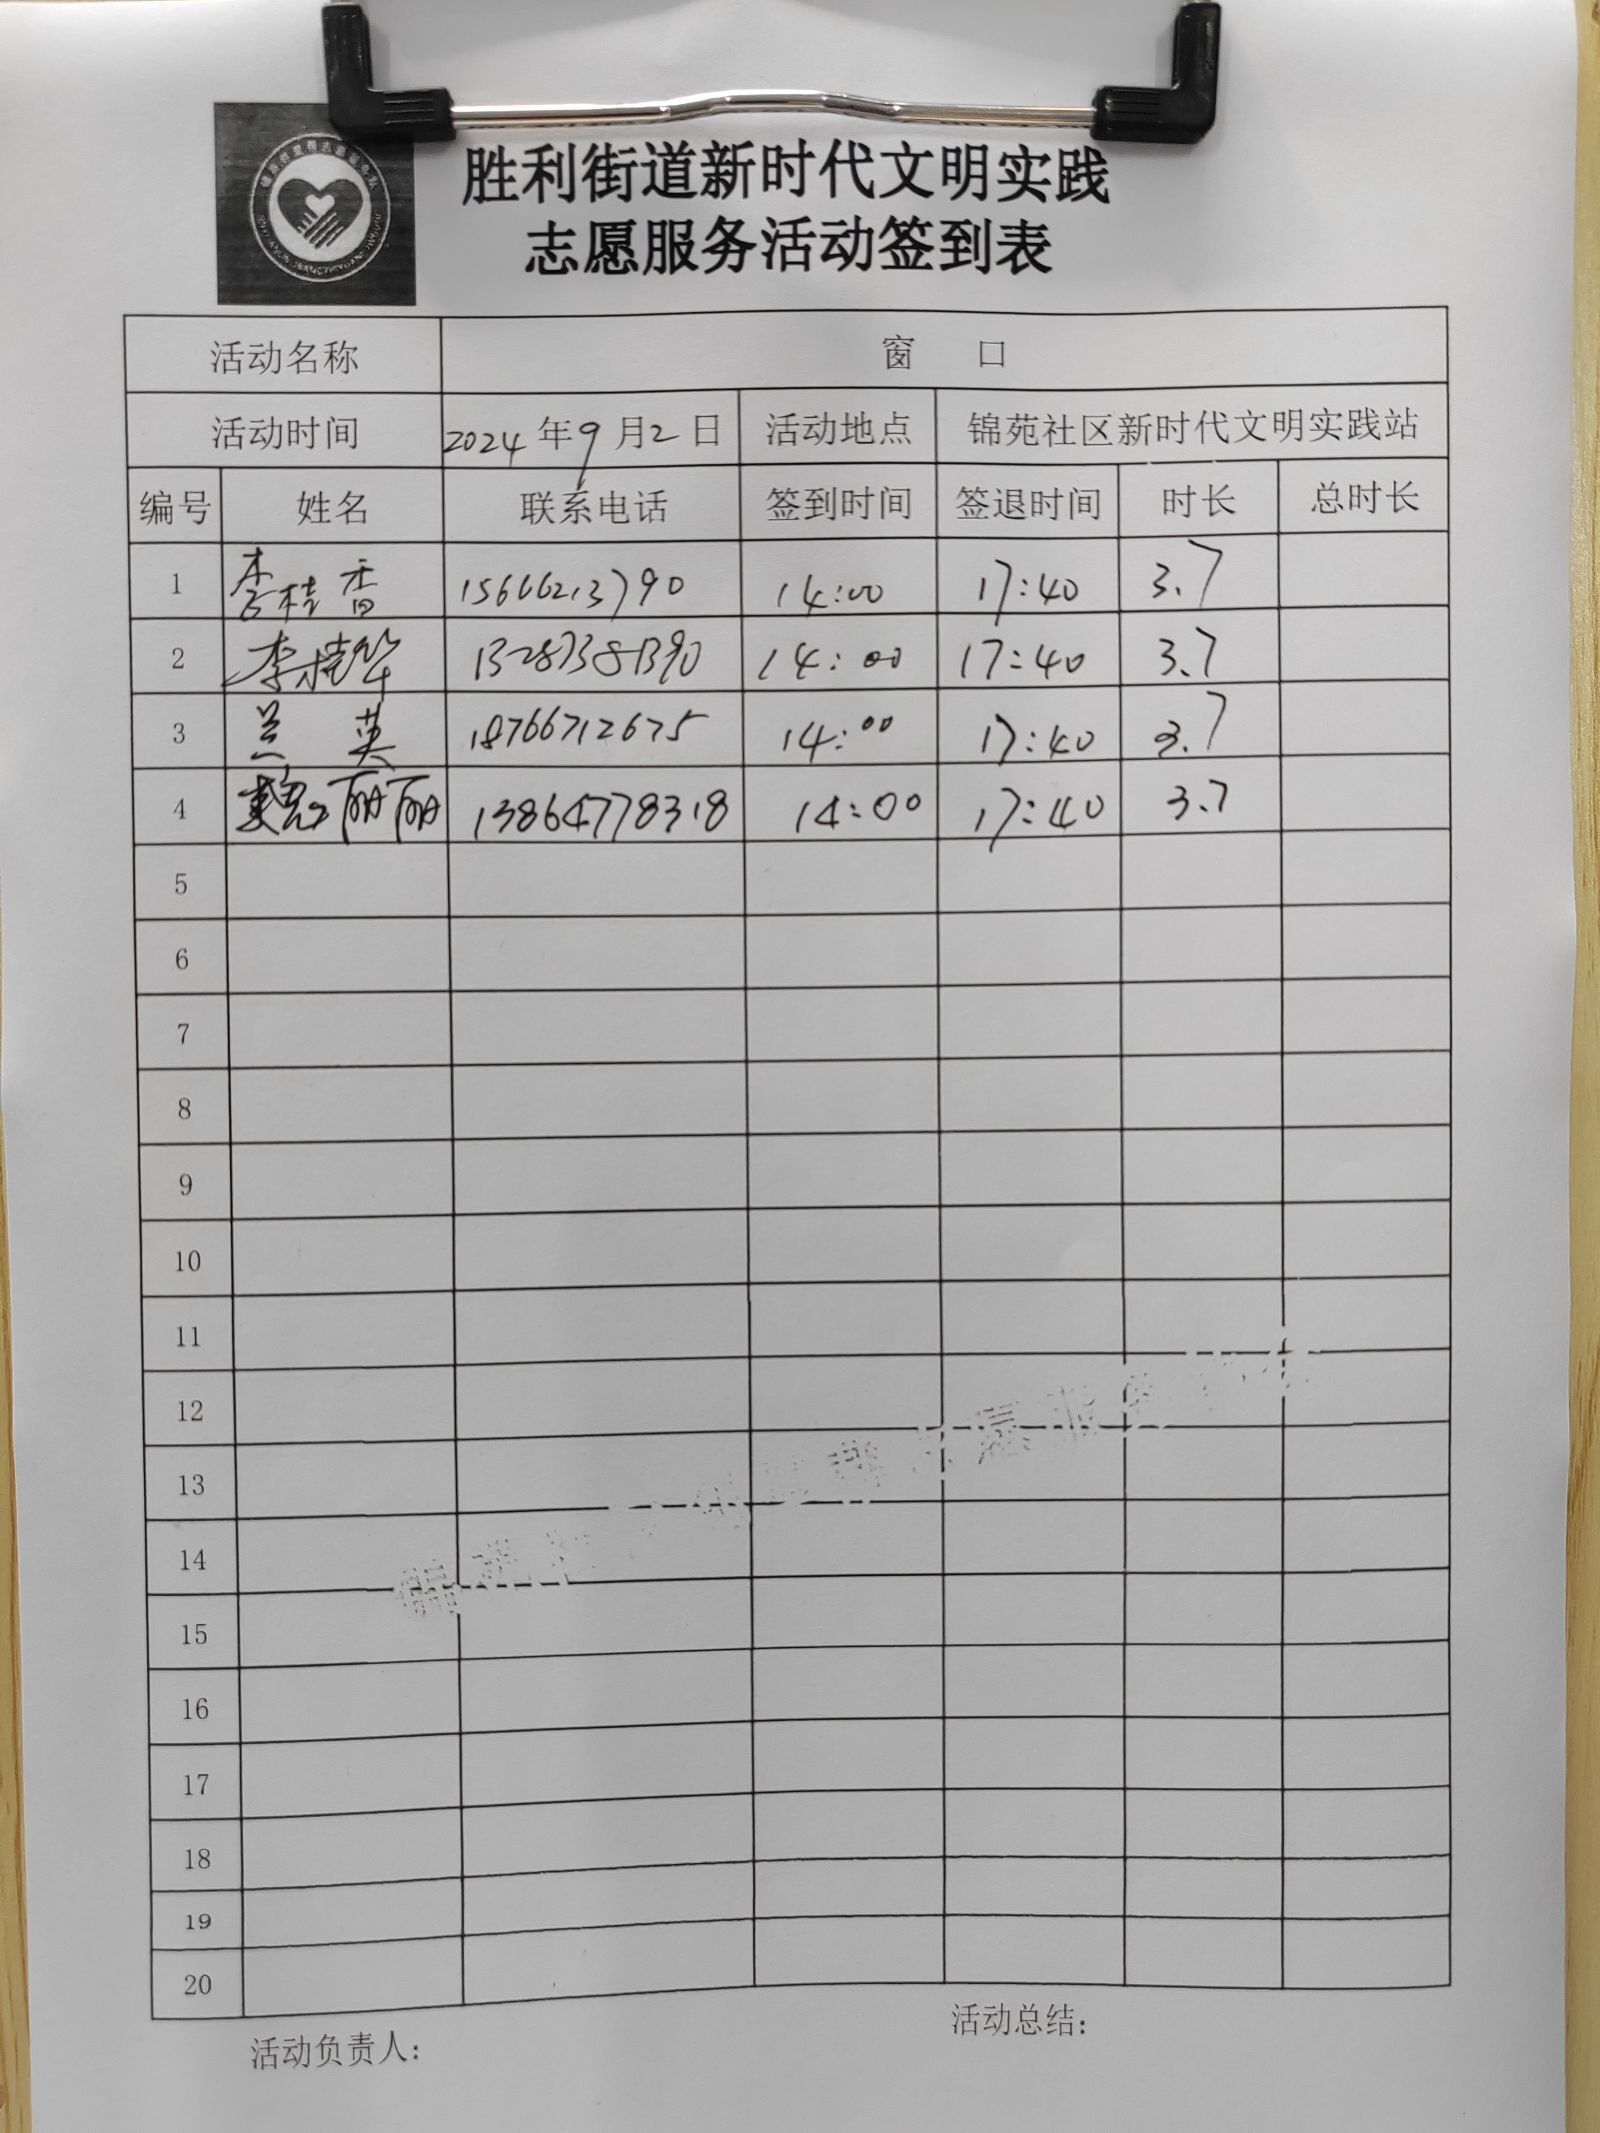 胜利街道新时代文明实践
志愿服务活动签到表
活动名称 窗 口
活动时间 2024年9月2日 活动地点 锦苑社区新时代文明实践站
编号 姓名 联系电话 签到时间 签退时间 时长 总时长
1 李桂香 15666213790 14:00 17:40 3.7
2 李桂华 13287381390 14:00 17:40 3.7
3 兰英 18766712675 14:00 17:40 3.7
4 魏丽丽 13864778318 14:00 17:40 3.7
5
6
7
8
9
10
11
12
13
14
15
16
17
18
19
20
活动负责人: 活动总结: